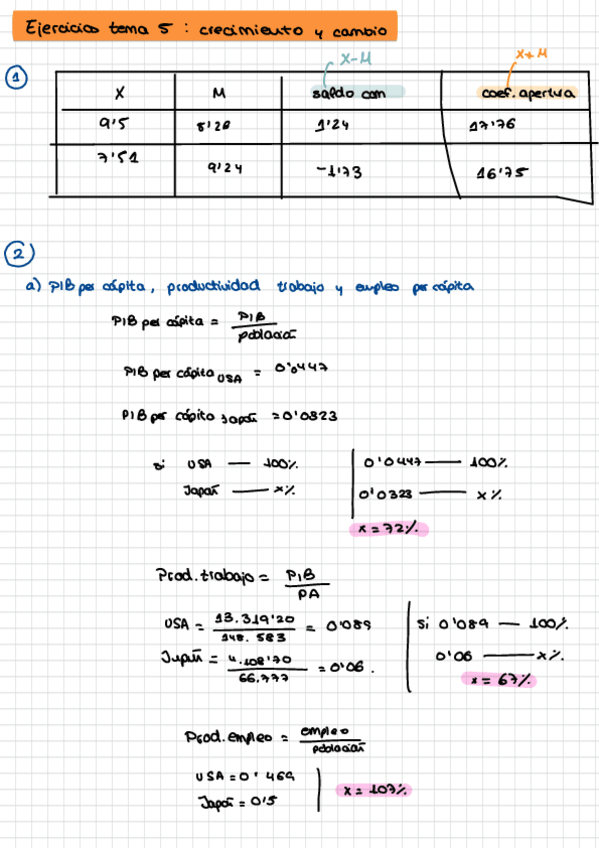 Ejercicios tema 5 : crecimiento y cambio
X-M X+M
1
X M saldo com coef. apertura
9'5 8'26 1'24 17'76
7'51 9'24 -1'73 16'75
2
a) PIB per cápita, productividad trabajo y empleo per cápita
PIB per cápita = PIB / población
PIB per cápita USA = 0'0447
PIB per cápita Japón = 0'0323
si USA — 100% 0'0447 — 100%
Japón — x% 0'0323 — x%
x = 72%
Prod. trabajo = PIB / PA
USA = 13.319'20 / 148.583 = 0'089 si 0'089 — 100%
Japón = 4.108'70 / 66.777 = 0'06. 0'06 — x%
x = 67%
Prod. empleo = empleo / población
USA = 0'469 x = 107%
Japón = 0'5